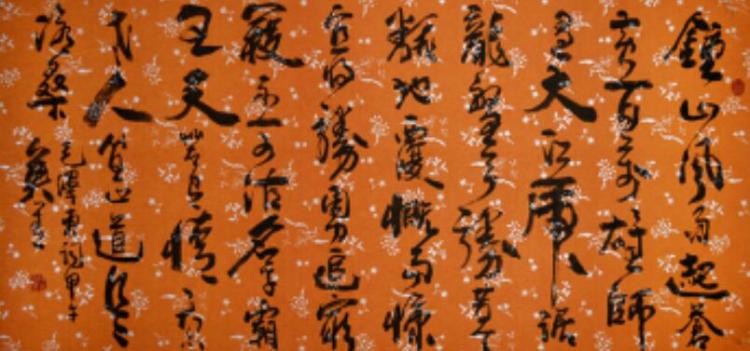 鐘山風雨起蒼
黃百万雄師
過大江虎踞
龍盤今勝昔天
翻地覆慨而慷
宜将剩勇追窮
寇不可沽名学霸
王天若有情天亦
老人间正道是
滄桑
毛澤東詩甲午